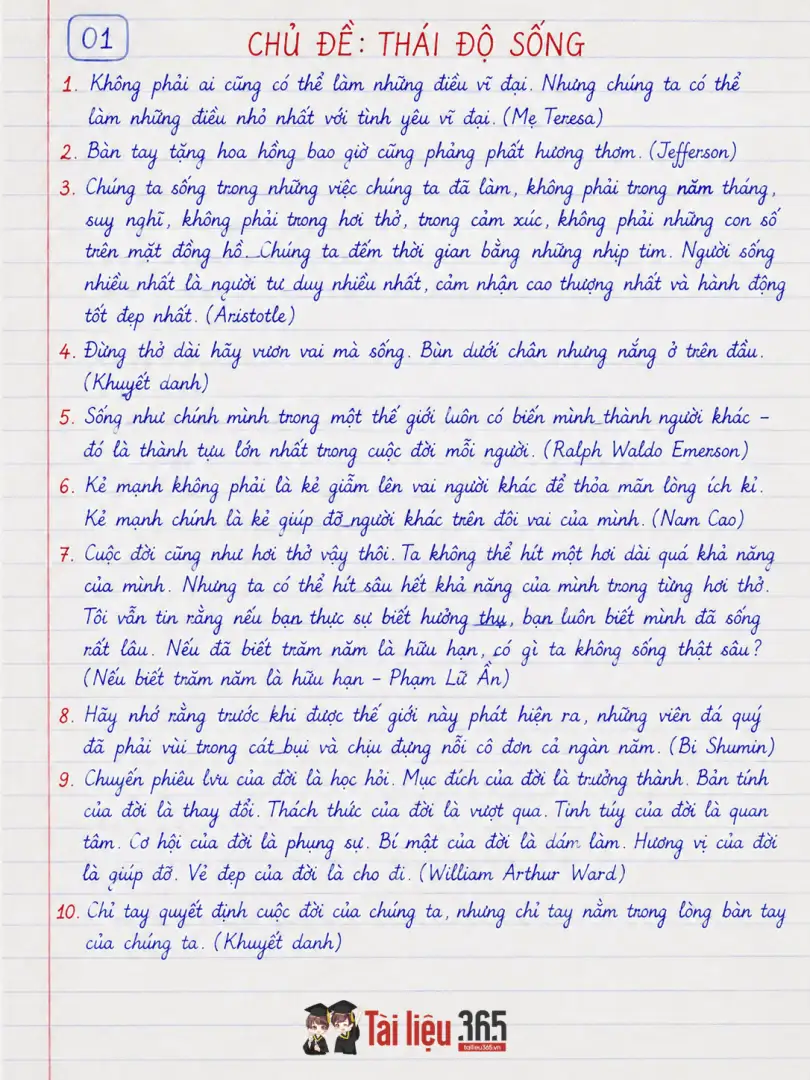 01
CHỦ ĐỀ: THÁI ĐỘ SỐNG
1. Không phải ai cũng có thể làm những điều vĩ đại. Nhưng chúng ta có thể
làm những điều nhỏ nhất với tình yêu vĩ đại. (Mẹ Teresa)
2. Bàn tay tặng hoa hồng bao giờ cũng phảng phất hương thơm. (Jefferson)
3. Chúng ta sống trong những việc chúng ta đã làm, không phải trong năm tháng,
suy nghĩ, không phải trong hơi thở, trong cảm xúc, không phải những con số
trên mặt đồng hồ. Chúng ta đếm thời gian bằng những nhịp tim. Người sống
nhiều nhất là người tư duy nhiều nhất, cảm nhận cao thượng nhất và hành động
tốt đẹp nhất. (Aristotle)
4. Đừng thở dài hãy vươn vai mà sống. Bùn dưới chân nhưng nắng ở trên đầu.
(Khuyết danh)
5. Sống như chính mình trong một thế giới luôn có biến mình thành người khác –
đó là thành tựu lớn nhất trong cuộc đời mỗi người. (Ralph Waldo Emerson)
6. Kẻ mạnh không phải là kẻ giẫm lên vai người khác để thỏa mãn lòng ích kỉ.
Kẻ mạnh chính là kẻ giúp đỡ người khác trên đôi vai của mình. (Nam Cao)
7. Cuộc đời cũng như hơi thở vậy thôi. Ta không thể hít một hơi dài quá khả năng
của mình. Nhưng ta có thể hít sâu hết khả năng của mình trong từng hơi thở.
Tôi vẫn tin rằng nếu bạn thực sự biết hưởng thụ, bạn luôn biết mình đã sống
rất lâu. Nếu đã biết trăm năm là hữu hạn, có gì ta không sống thật sâu?
(Nếu biết trăm năm là hữu hạn – Phạm Lữ Ân)
8. Hãy nhớ rằng trước khi được thế giới này phát hiện ra, những viên đá quý
đã phải vùi trong cát bụi và chịu đựng nỗi cô đơn cả ngàn năm. (Bi Shumin)
9. Chuyến phiêu lưu của đời là học hỏi. Mục đích của đời là trưởng thành. Bản tính
của đời là thay đổi. Thách thức của đời là vượt qua. Tinh túy của đời là quan
tâm. Cơ hội của đời là phụng sự. Bí mật của đời là dám làm. Hương vị của đời
là giúp đỡ. Vẻ đẹp của đời là cho đi. (William Arthur Ward)
10. Chỉ tay quyết định cuộc đời của chúng ta, nhưng chỉ tay nằm trong lòng bàn tay
của chúng ta. (Khuyết danh)
Tài liệu 365
tailieu365.vn